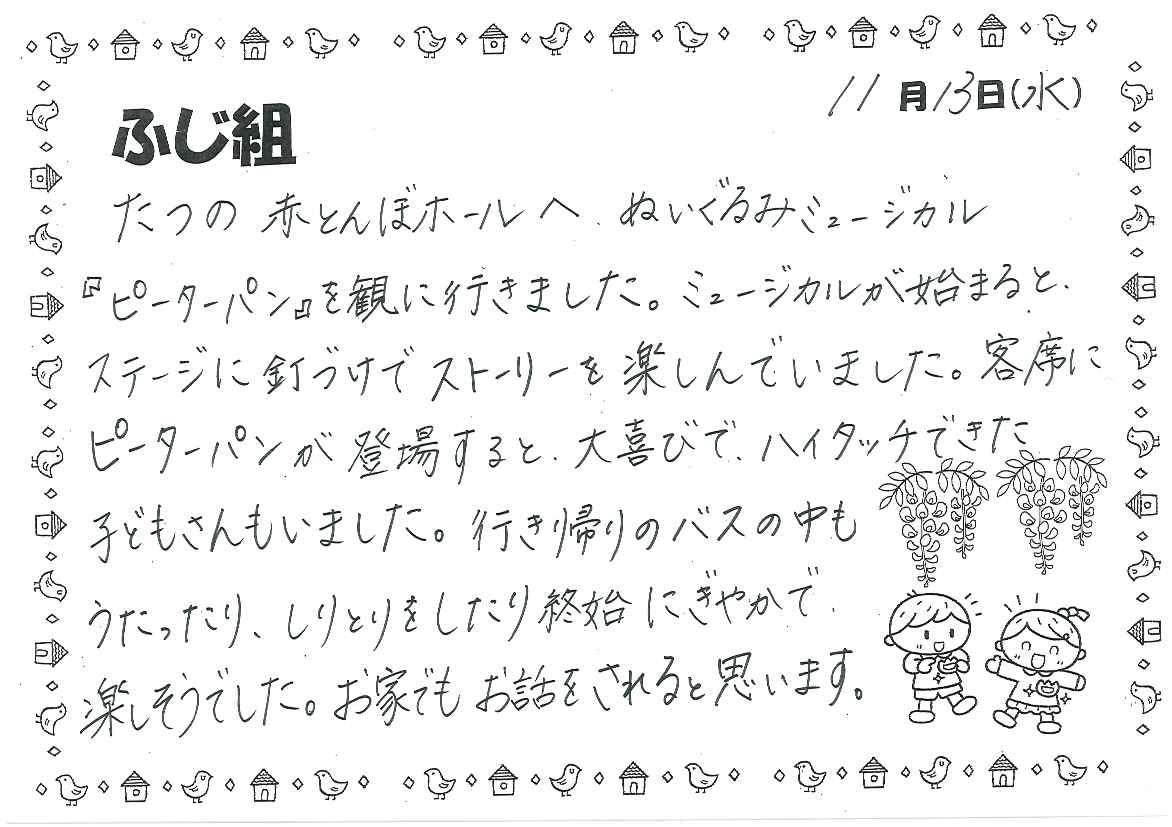 11月13日(水)
ふじ組
たつの 赤とんぼホールへ、ぬいぐるみミュージカル
『ピーターパン』を観に行きました。ミュージカルが始まると、
ステージに釘づけでストーリーを楽しんでいました。客席に
ピーターパンが登場すると、大喜びで、ハイタッチできた
子どもさんもいました。行き帰りのバスの中も
うたったり、しりとりをしたり終始にぎやかで、
楽しそうでした。お家でもお話をされると思います。